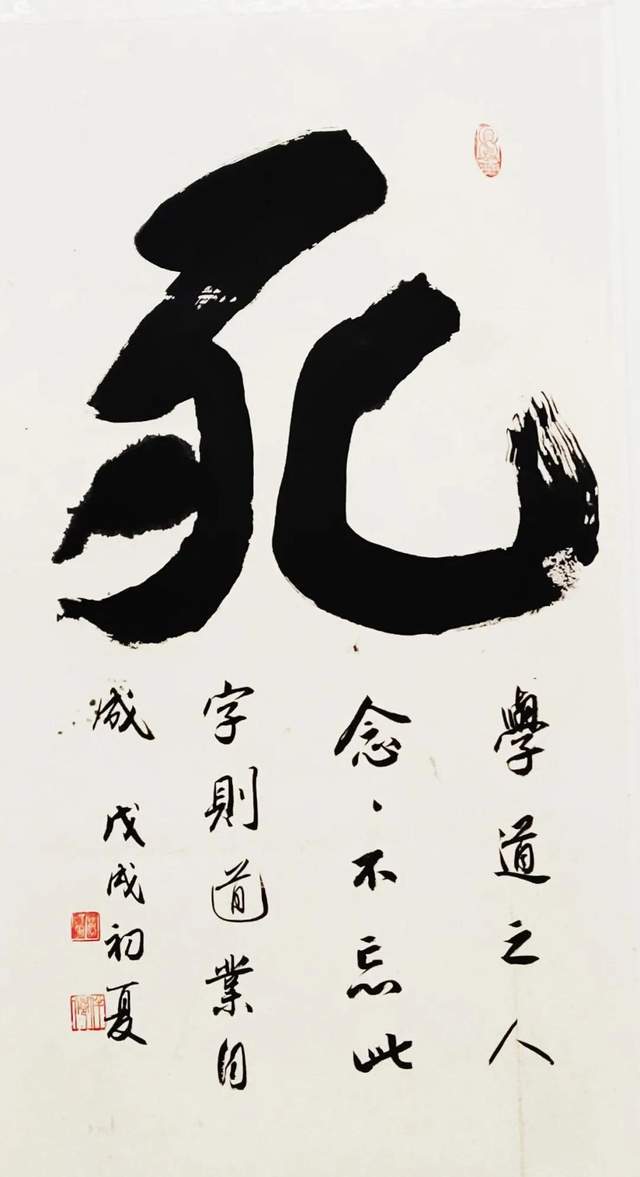 死
學道之人
念、不忘此
字則道業自
成
戊戌初夏